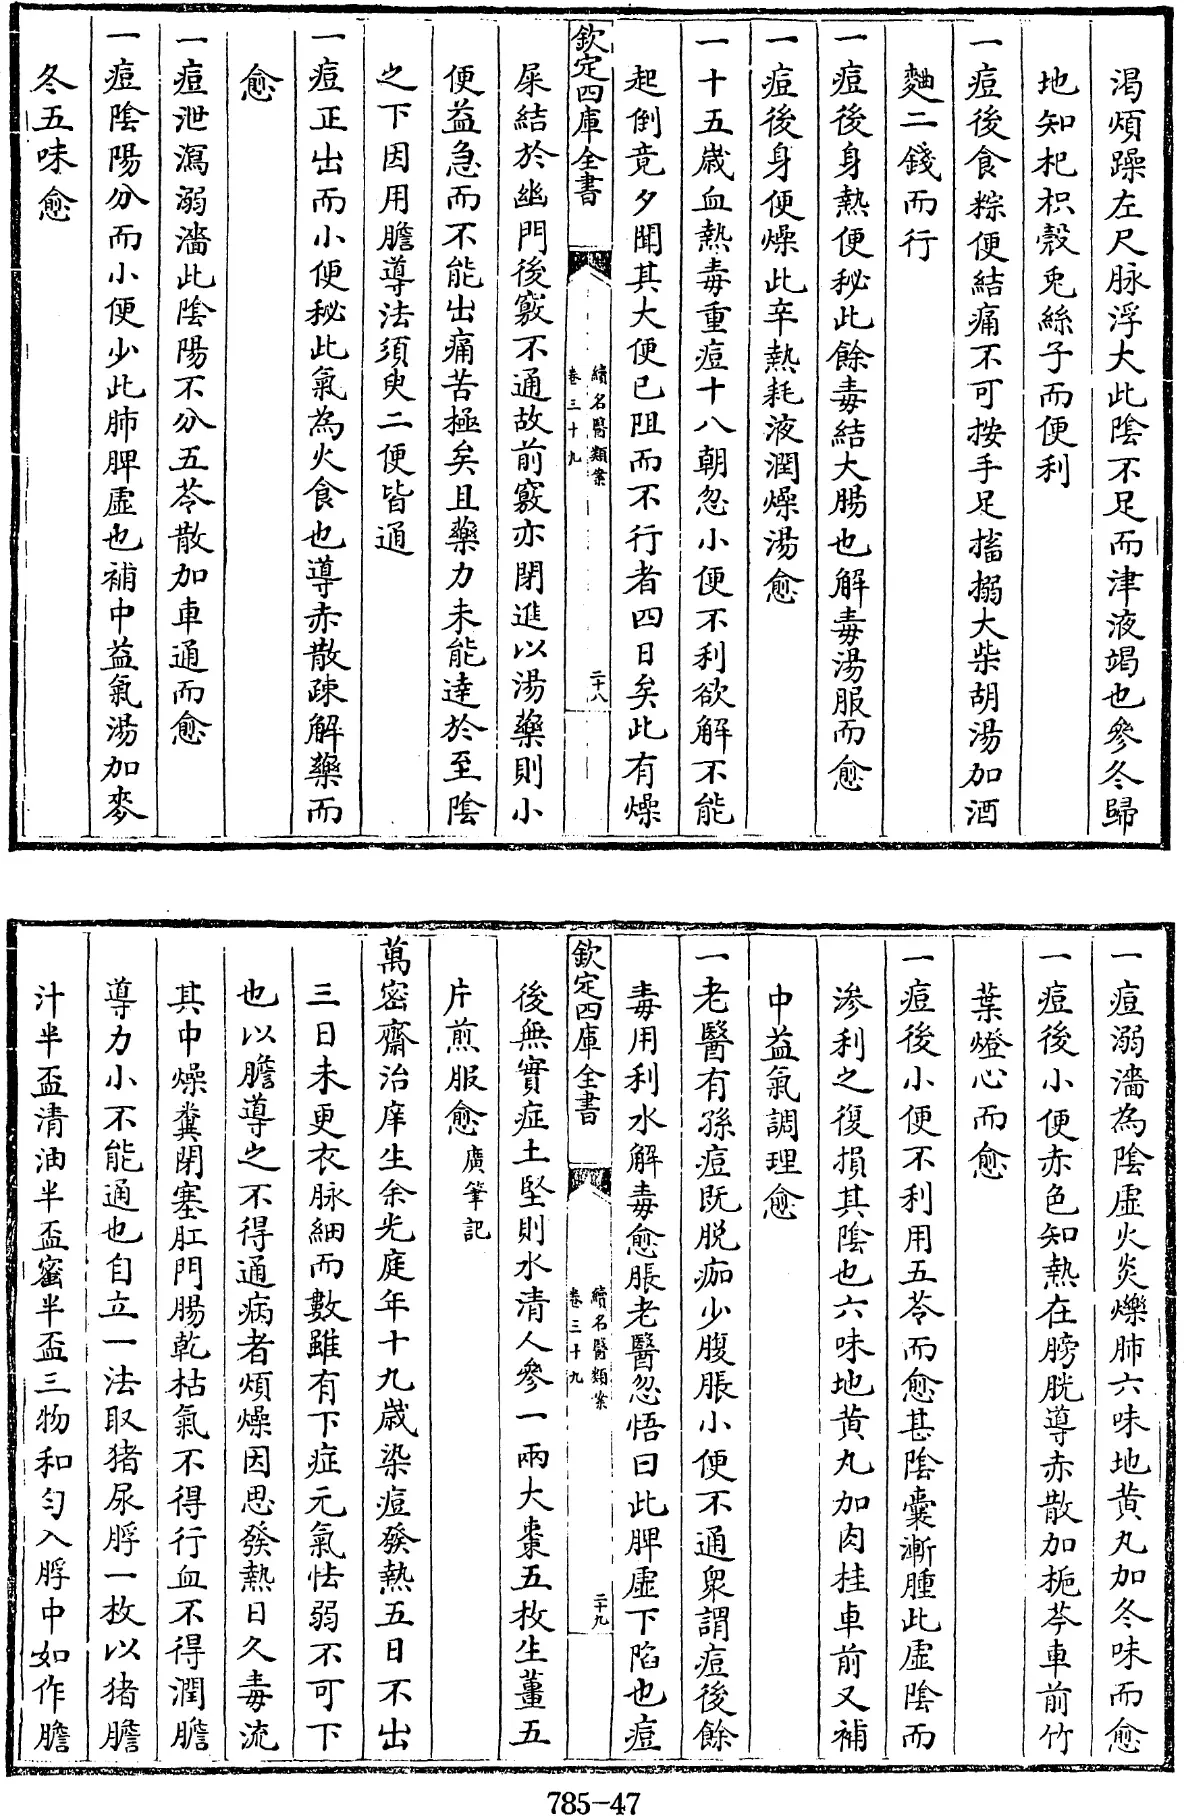 渴煩躁左尺脉浮大此陰不足而津液竭也參冬歸
地知杞枳殻兎絲子而便利
一痘後食粽便結痛不可按手足搐搦大柴胡湯加酒
麯二錢而行
一痘後身熱便秘此餘毒結大腸也解毒湯服而愈
一痘後身便燥此辛熱耗液潤燥湯愈
一十五歲血熱毒重痘十八朝忽小便不利欲解不能
起倒竟夕聞其大便已阻而不行者四日矣此有燥
欽定四庫全書
續名醫類案
卷三十九
二十八
屎結於幽門後竅不通故前竅亦閉進以湯藥則小
便益急而不能出痛苦極矣且藥力未能達於至陰
之下因用膽導法須臾二便皆通
一痘正出而小便秘此氣為火食也導赤散疎解藥而
愈
一痘泄瀉弱濇此陰陽不分五苓散加車通而愈
一痘陰陽分而小便少此肺脾虛也補中益氣湯加麥
冬五味愈
一痘溺濇為陰虛火炎爍肺六味地黄丸加冬味而愈
一痘後小便赤色知熱在膀胱導赤散加梔芩車前竹
葉燈心而愈
一痘後小便不利用五苓而愈甚陰囊漸腫此虛陰而
滲利之復損其陰也六味地黄丸加肉桂車前又補
中益氣調理愈
一老醫有孫痘既脱痂少腹脹小便不通衆謂痘後餘
毒用利水解毒愈脹老醫忽悟曰此脾虛下陷也痘
欽定四庫全書
續名醫類案
卷三十九
二十九
後無實症土堅則水清人參一兩大棗五枚生薑五
片煎服愈廣筆記
萬密齋治庠生余光庭年十九歲染痘發熱五日不出
三日未更衣脉細而數雖有下症元氣怯弱不可下
也以膽導之不得通病者煩燥因思發熱日久毒流
其中燥糞閉塞肛門腸乾枯氣不得行血不得潤膽
導力小不能通也自立一法取猪尿脬一枚以猪膽
汁半盃清油半盃蜜半盃三物和匀入脬中如作膽
785-47